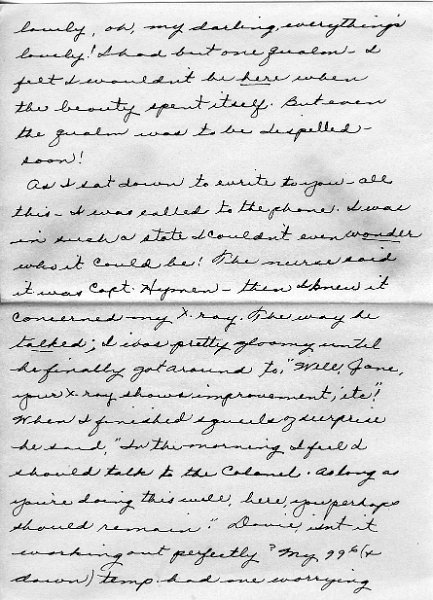 lovely, oh, my darling, everything's
lovely! I had but one qualm - I
felt I wouldn't be here when
the beauty spent itself. But even
the qualm was to be dispelled -
soon!
As I sat down to write to you - all
this - I was called to the phone. I was
in such a state I couldn't even wonder
who it could be! The nurse said
it was Capt. Hymen - then I knew it
concerned my X-ray. The way he
talked; I was pretty gloomy until
he finally got around to, "Well, Jane,
your X-ray shows improvement, etc"!
When I finished squeals of surprise
he said, "In the morning I feel I
should talk to the Colonel. As long as
you're doing this well, here, you perhaps
should remain." Davie, isn't it
working out perfectly? My 99⁶ (&
down) temp. had me worrying